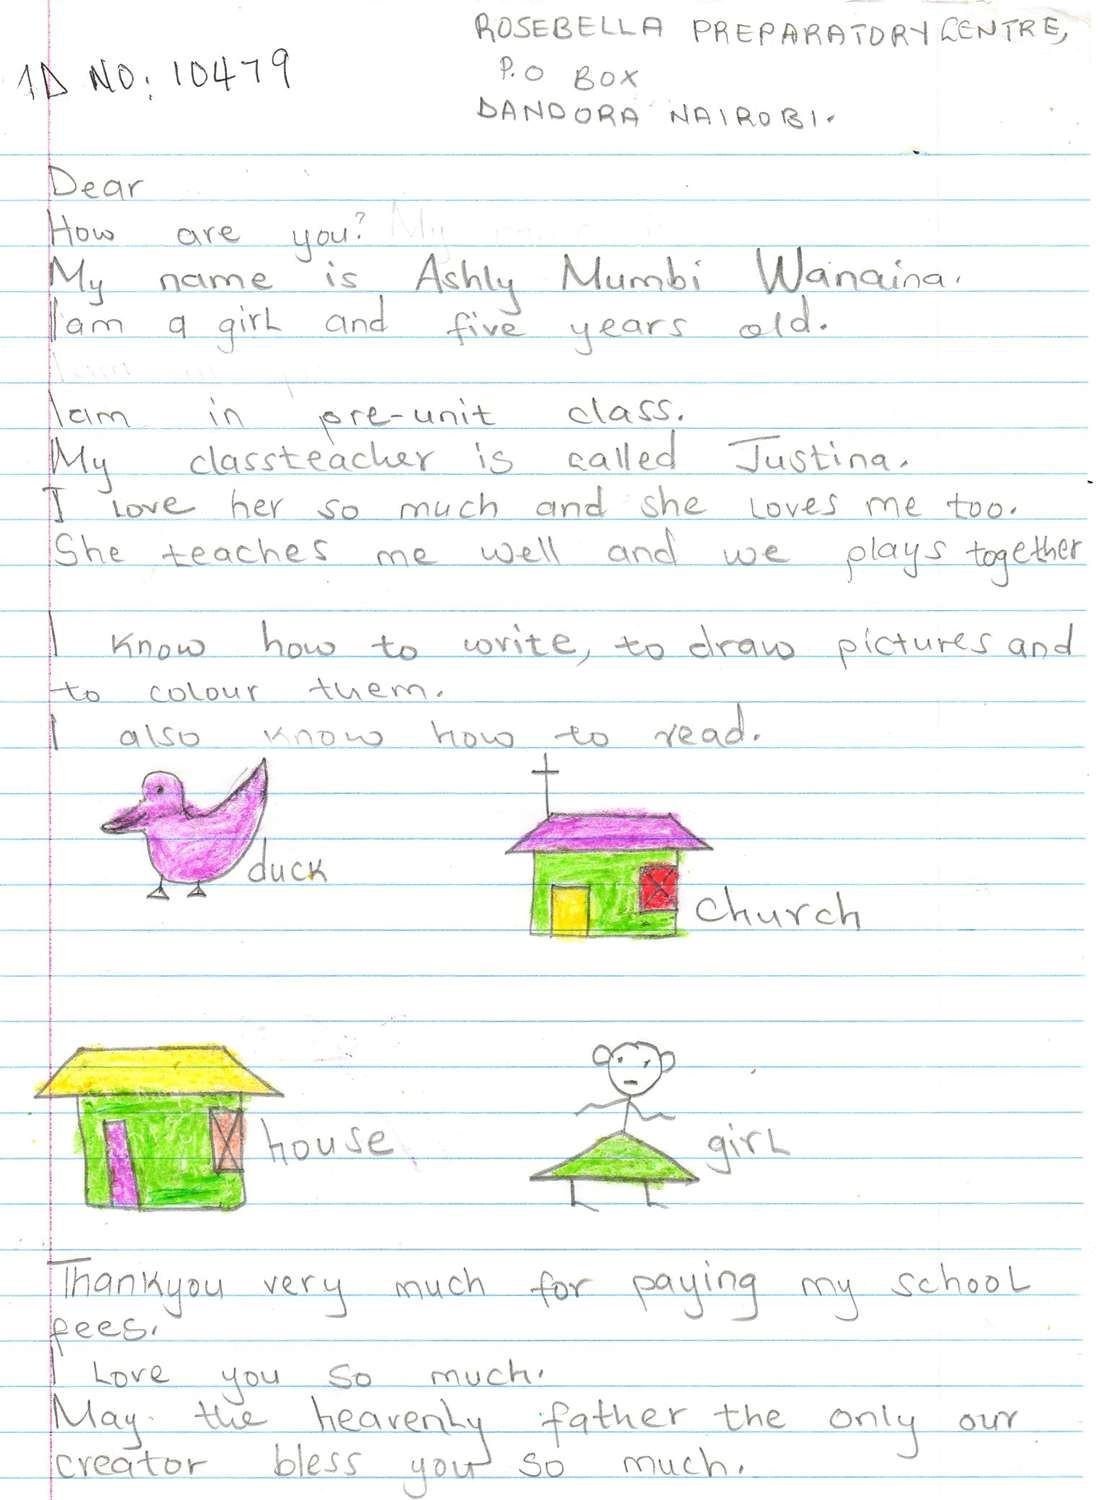 ROSEBELLA PREPARATORY CENTRE,
ID NO: 10479
P.O BOX
DANDORA NAIROBI.
Dear
How are you?
My name is Ashly Mumbi Wanaina.
I am a girl and five years old.
I am in pre-unit class.
My classteacher is called Justina.
I love her so much and she loves me too.
She teaches me well and we plays together
I know how to write, to draw pictures and
to colour them.
I also know how to read.
duck
church
house
girl
Thankyou very much for paying my school
fees.
I Love you so much.
May the heavenly father the only our
creator bless you so much.